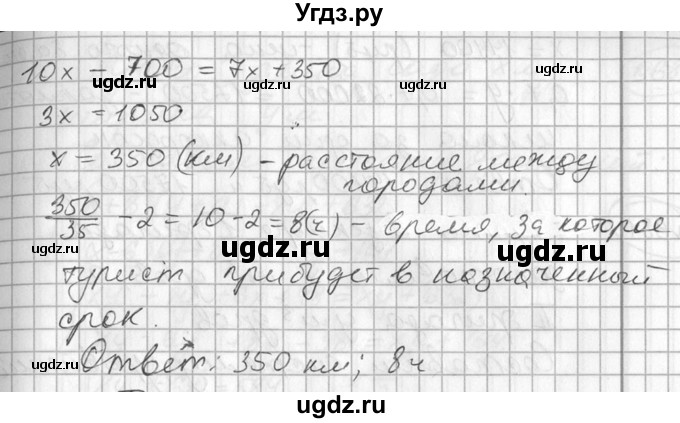 Угдз.ру
10x - 700 = 7x + 350
ugdz.ru ugdz.ru ugdz.ru
3x = 1050
x = 350 (км) - расстояние между
городами.
350/35 - 2 = 10 - 2 = 8(ч) - время, за которое
ugdz.ru ugdz.ru ugdz.ru
турист прибудет в назначенный
срок.
Ответ: 350 км; 8ч
ugdz.ru ugdz.ru ugdz.ru
ugdz.ru